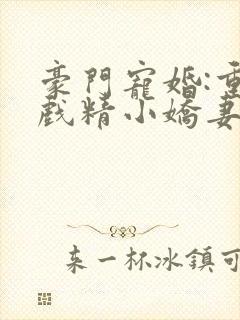 豪門寵婚:重
戲精小嬌妻
来一杯冰鎮可